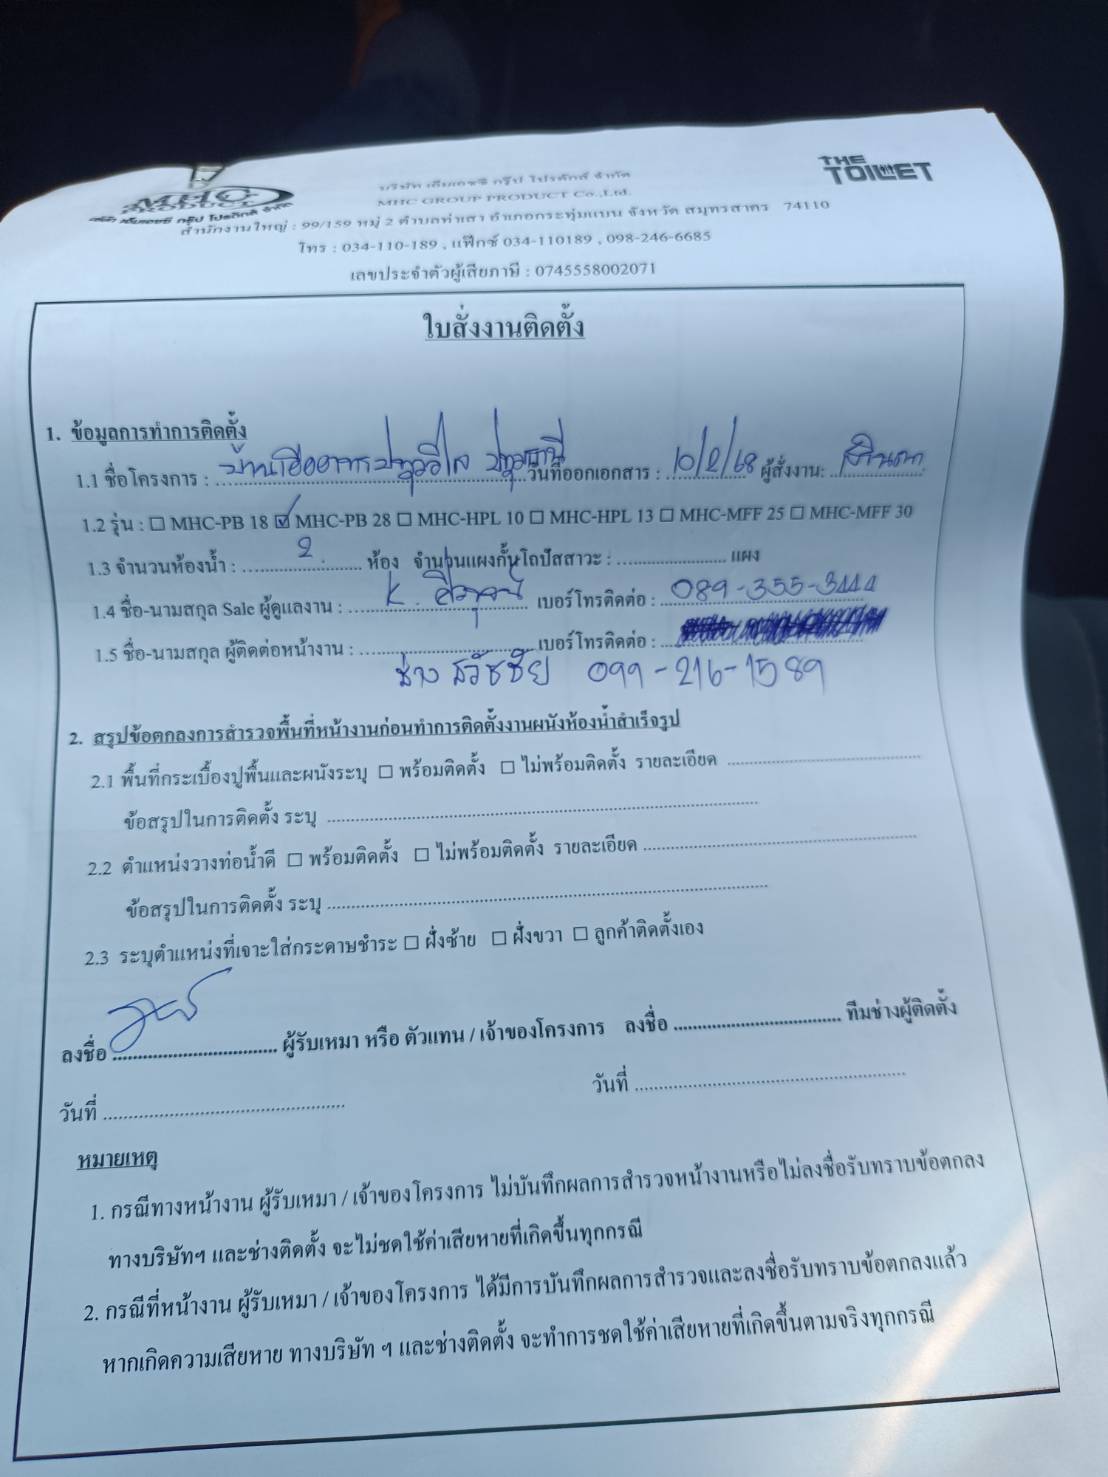 MHC
PRODUCT
บริษัท เอ็มเอชซี กรุ๊ป โปรดักส์ จำกัด
THE TOILET
บริษัท เอ็มเอชซี กรุ๊ป โปรดักส์ จำกัด
MHC GROUP PRODUCT Co.,Ltd.
สำนักงานใหญ่ : 99/159 หมู่ 2 ตำบลท่าเสา อำเภอกระทุ่มแบน จังหวัด สมุทรสาคร 74110
โทร : 034-110-189 , แฟ็กซ์ 034-110189 , 098-246-6685
เลขประจำตัวผู้เสียภาษี : 0745558002071
ใบสั่งงานติดตั้ง
1. ข้อมูลการทำการติดตั้ง
1.1 ชื่อโครงการ : บ้านเอื้ออาทร ปทุมธานี วันที่ออกเอกสาร : 10/2/68 ผู้สั่งงาน:
1.2 รุ่น : ☐ MHC-PB 18 ☑ MHC-PB 28 ☐ MHC-HPL 10 ☐ MHC-HPL 13 ☐ MHC-MFF 25 ☐ MHC-MFF 30
1.3 จำนวนห้องน้ำ : 2 ห้อง จำนวนแผงกั้นโถปัสสาวะ : แผง
1.4 ชื่อ-นามสกุล Sale ผู้ดูแลงาน : K. เบอร์โทรติดต่อ : 089-355-3444
1.5 ชื่อ-นามสกุล ผู้ติดต่อหน้างาน : เบอร์โทรติดต่อ :
ช่าง สวัชชัย 099-216-1589
2. สรุปข้อตกลงการสำรวจพื้นที่หน้างานก่อนทำการติดตั้งงานผนังห้องน้ำสำเร็จรูป
2.1 พื้นที่กระเบื้องปูพื้นและผนังระบุ ☐ พร้อมติดตั้ง ☐ ไม่พร้อมติดตั้ง รายละเอียด
ข้อสรุปในการติดตั้ง ระบุ
2.2 ตำแหน่งวางท่อน้ำดี ☐ พร้อมติดตั้ง ☐ ไม่พร้อมติดตั้ง รายละเอียด
ข้อสรุปในการติดตั้ง ระบุ
2.3 ระบุตำแหน่งที่เจาะใส่กระดาษชำระ ☐ ฝั่งซ้าย ☐ ฝั่งขวา ☐ ลูกค้าติดตั้งเอง
ลงชื่อ ผู้รับเหมา หรือ ตัวแทน / เจ้าของโครงการ ลงชื่อ ทีมช่างผู้ติดตั้ง
วันที่ วันที่
หมายเหตุ
1. กรณีทางหน้างาน ผู้รับเหมา / เจ้าของโครงการ ไม่บันทึกผลการสำรวจหน้างานหรือไม่ลงชื่อรับทราบข้อตกลง
ทางบริษัทฯ และช่างติดตั้ง จะไม่ชดใช้ค่าเสียหายที่เกิดขึ้นทุกกรณี
2. กรณีที่หน้างาน ผู้รับเหมา / เจ้าของโครงการ ได้มีการบันทึกผลการสำรวจและลงชื่อรับทราบข้อตกลงแล้ว
หากเกิดความเสียหาย ทางบริษัท ฯ และช่างติดตั้ง จะทำการชดใช้ค่าเสียหายที่เกิดขึ้นตามจริงทุกกรณี